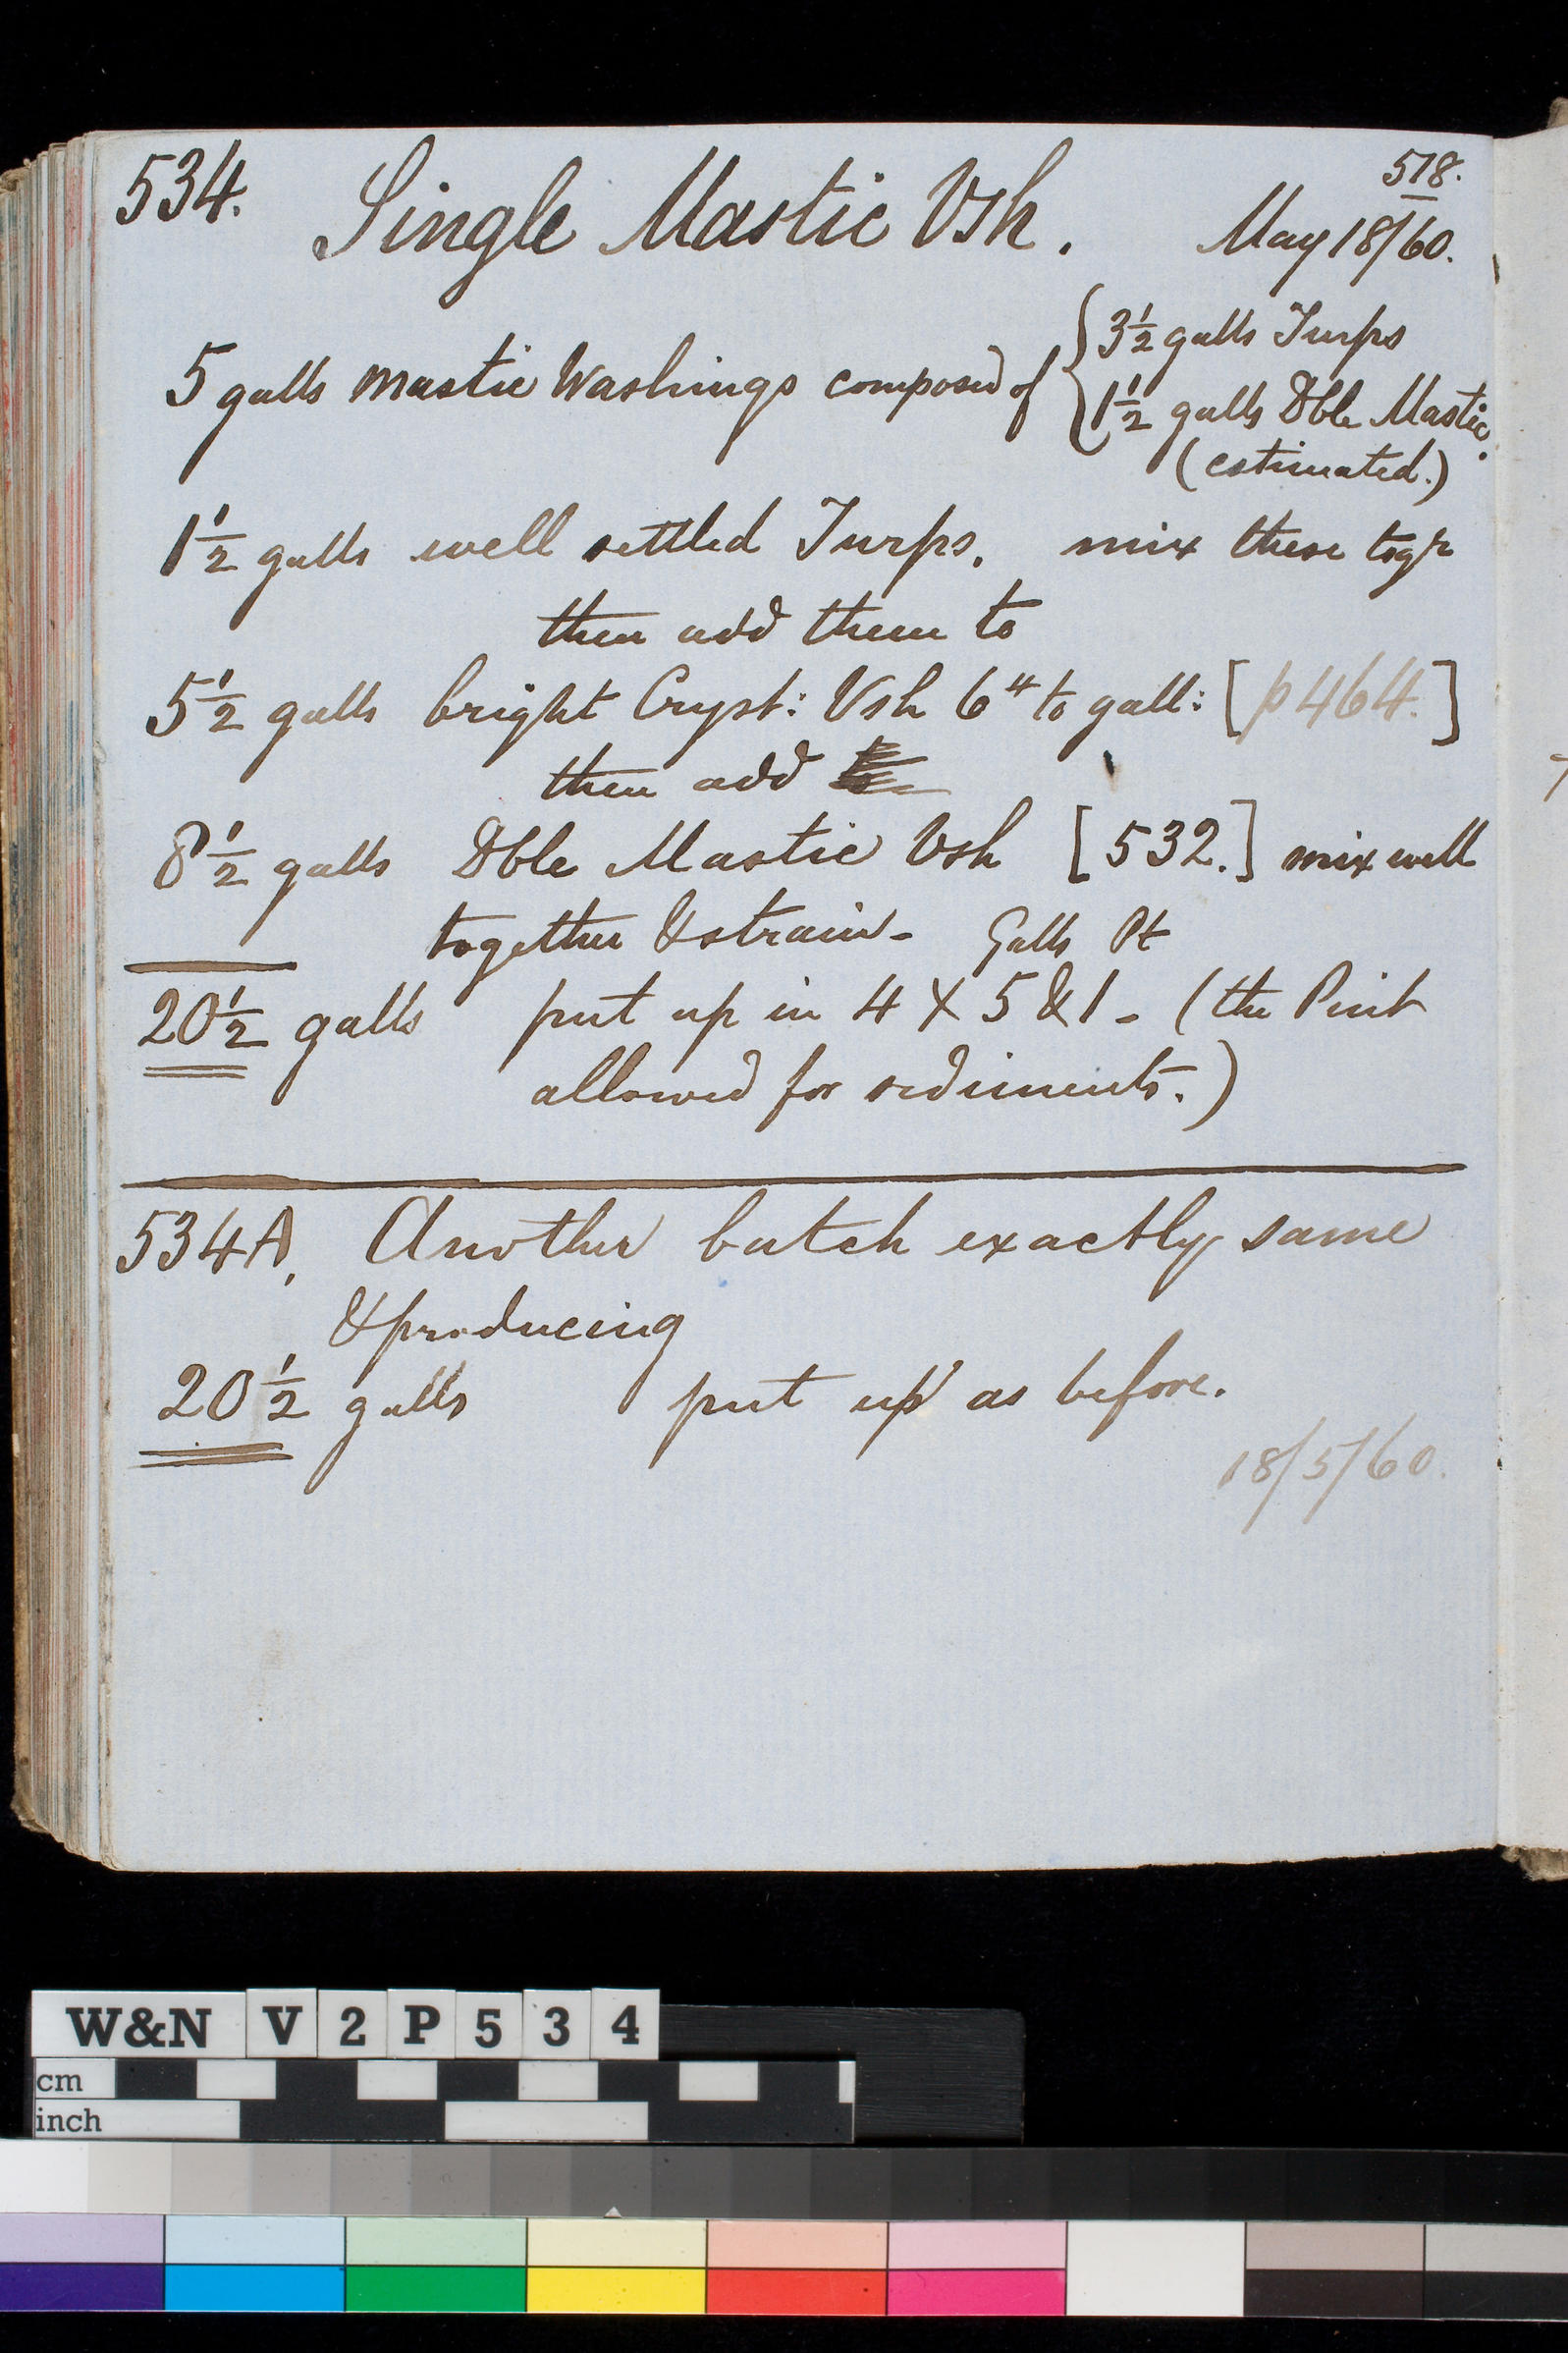 534. Single Mastic Vsh. 518.
May 18/60.
5 galls Mastic Washings composed of { 3½ galls Turps
1½ galls Dble Mastic.
(estimated.)
1½ galls well settled Turps. mix these togr
then add them to
5½ galls bright Cryst: Vsh 6" to gall: [p 464.]
then add
8½ galls Dble Mastic Vsh [532.] mix well
together & strain - Galls Pt
20½ galls put up in 4 X 5 & 1 - (the Pint
allowed for sediments.)
534A. Another batch exactly same
& producing
20½ galls put up as before.
18/5/60.
W&N V 2 P 5 3 4
cm
inch